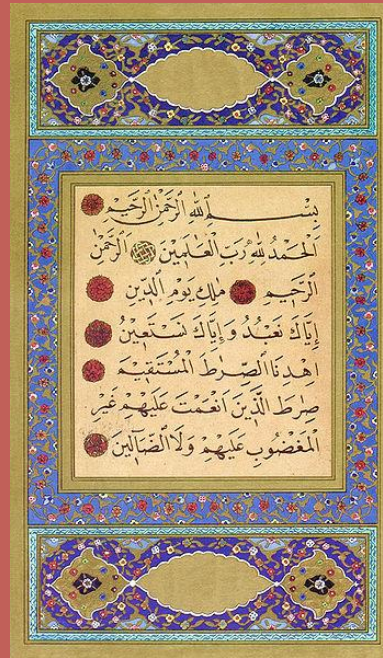 بِسْمِ ٱللَّهِ ٱلرَّحْمَٰنِ ٱلرَّحِيمِ
اَلْحَمْدُ لِلَّهِ رَبِّ ٱلْعَٰلَمِينَ ٱلرَّحْمَٰنِ
ٱلرَّحِيمِ مَٰلِكِ يَوْمِ ٱلدِّينِ
إِيَّاكَ نَعْبُدُ وَإِيَّاكَ نَسْتَعِينُ
اِهْدِنَا ٱلصِّرَٰطَ ٱلْمُسْتَقِيمَ
صِرَٰطَ ٱلَّذِينَ اَنْعَمْتَ عَلَيْهِمْ غَيْرِ
ٱلْمَغْضُوبِ عَلَيْهِمْ وَلَا ٱلضَّآلِّينَ